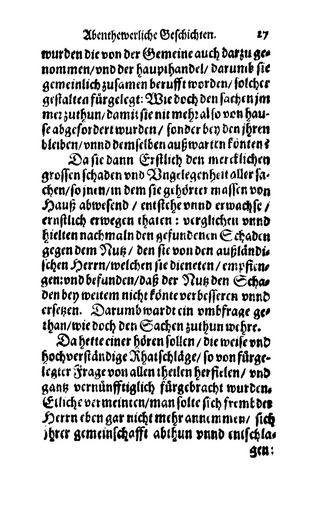 Abenthewerliche Geschichten. 27
wurden die von der Gemeine auch darzu ge-
nommen/vnd der haupthandel/ darumb sie
gemeinlich zusamen berufft worden/solcher
gestalten fürgelegt: Wie doch den sachen jm
mer zuthun/damit sie nit mehr also von hau-
se abgefordert wurden/ sonder bey den jhren
bleiben/vnnd demselben außwarten könten?
Da sie dann Erstlich den mercklichen
grossen schaden vnd Vngelegenheit aller sa-
chen/so jnen/in dem sie gehörter massen von
Hauß abwesend / entstehe vnnd erwachse/
ernstlich erwegen thaten: verglichen vnnd
hielten nachmaln den gefundenen Schaden
gegen dem Nutz/ den sie von den außländi-
schen Herrn/welchen sie dieneten/ empfien-
gen:vnd befunden/daß der Nutz den Scha-
den bey weitem nicht könte verbesseren vnnd
ersetzen. Darumb wardt ein vmbfrage ge-
than/wie doch den Sachen zuthun wehre.
Da hette einer hören sollen/ die weise vnd
hochverständige Rhatschläge/ so von fürge-
legter Frage von allen theilen herfielen/ vnd
gantz vernünfftiglich fürgebracht wurden.
Etliche vermeinten/man solte sich frembder
Herrn eben gar nicht mehr annemmen/ sich
jhrer gemeinschafft abthun vnnd entschla-
gen: